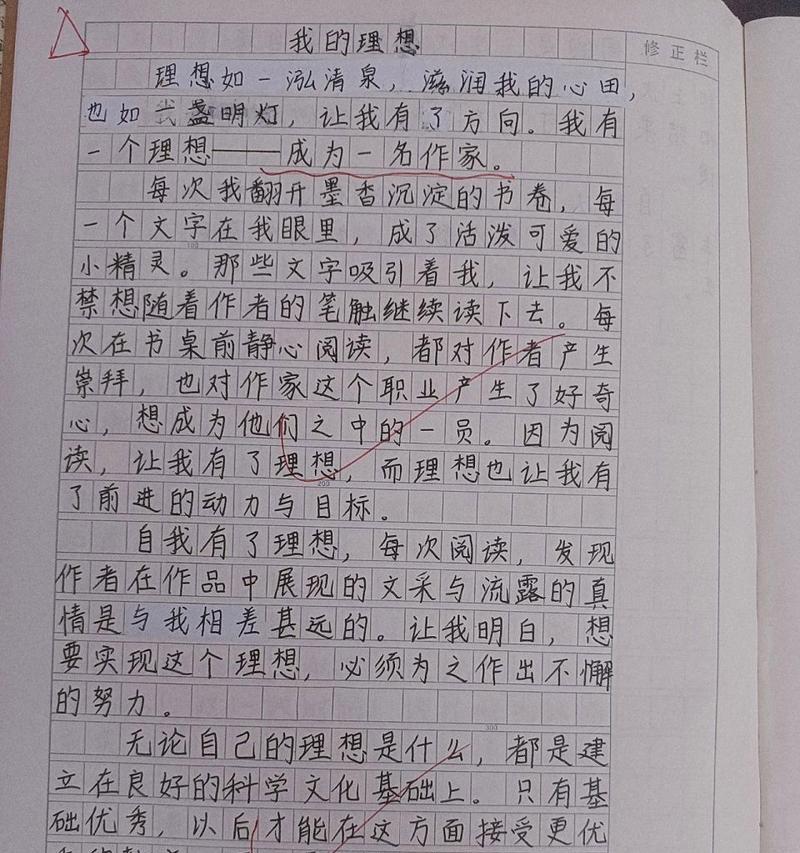 我的理想
修正栏
理想如一泓清泉，滋润我的心田，
也如一盏明灯，让我有了方向。我有
一个理想——成为一名作家。
每次我翻开墨香沉淀的书卷，每
一个文字在我眼里，成了活泼可爱的
100
小精灵。那些文字吸引着我，让我不
禁想随着作者的笔触继续读下去。每
次在书桌前静心阅读，都对作者产生
崇拜，也对作家这个职业产生了好奇
心，想成为他们之中的一员。因为阅
读，让我有了理想，而理想也让我有
200
了前进的动力与目标。
自我有了理想，每次阅读，发现
作者在作品中展现的文采与流露的真
情是与我相差甚远的。让我明白，想
要实现这个理想，必须为之作出不懈
的努力。
300
无论自己的理想是什么，都是建
立在良好的科学文化基础上。只有基
础优秀，以后才能在这方面接受更优